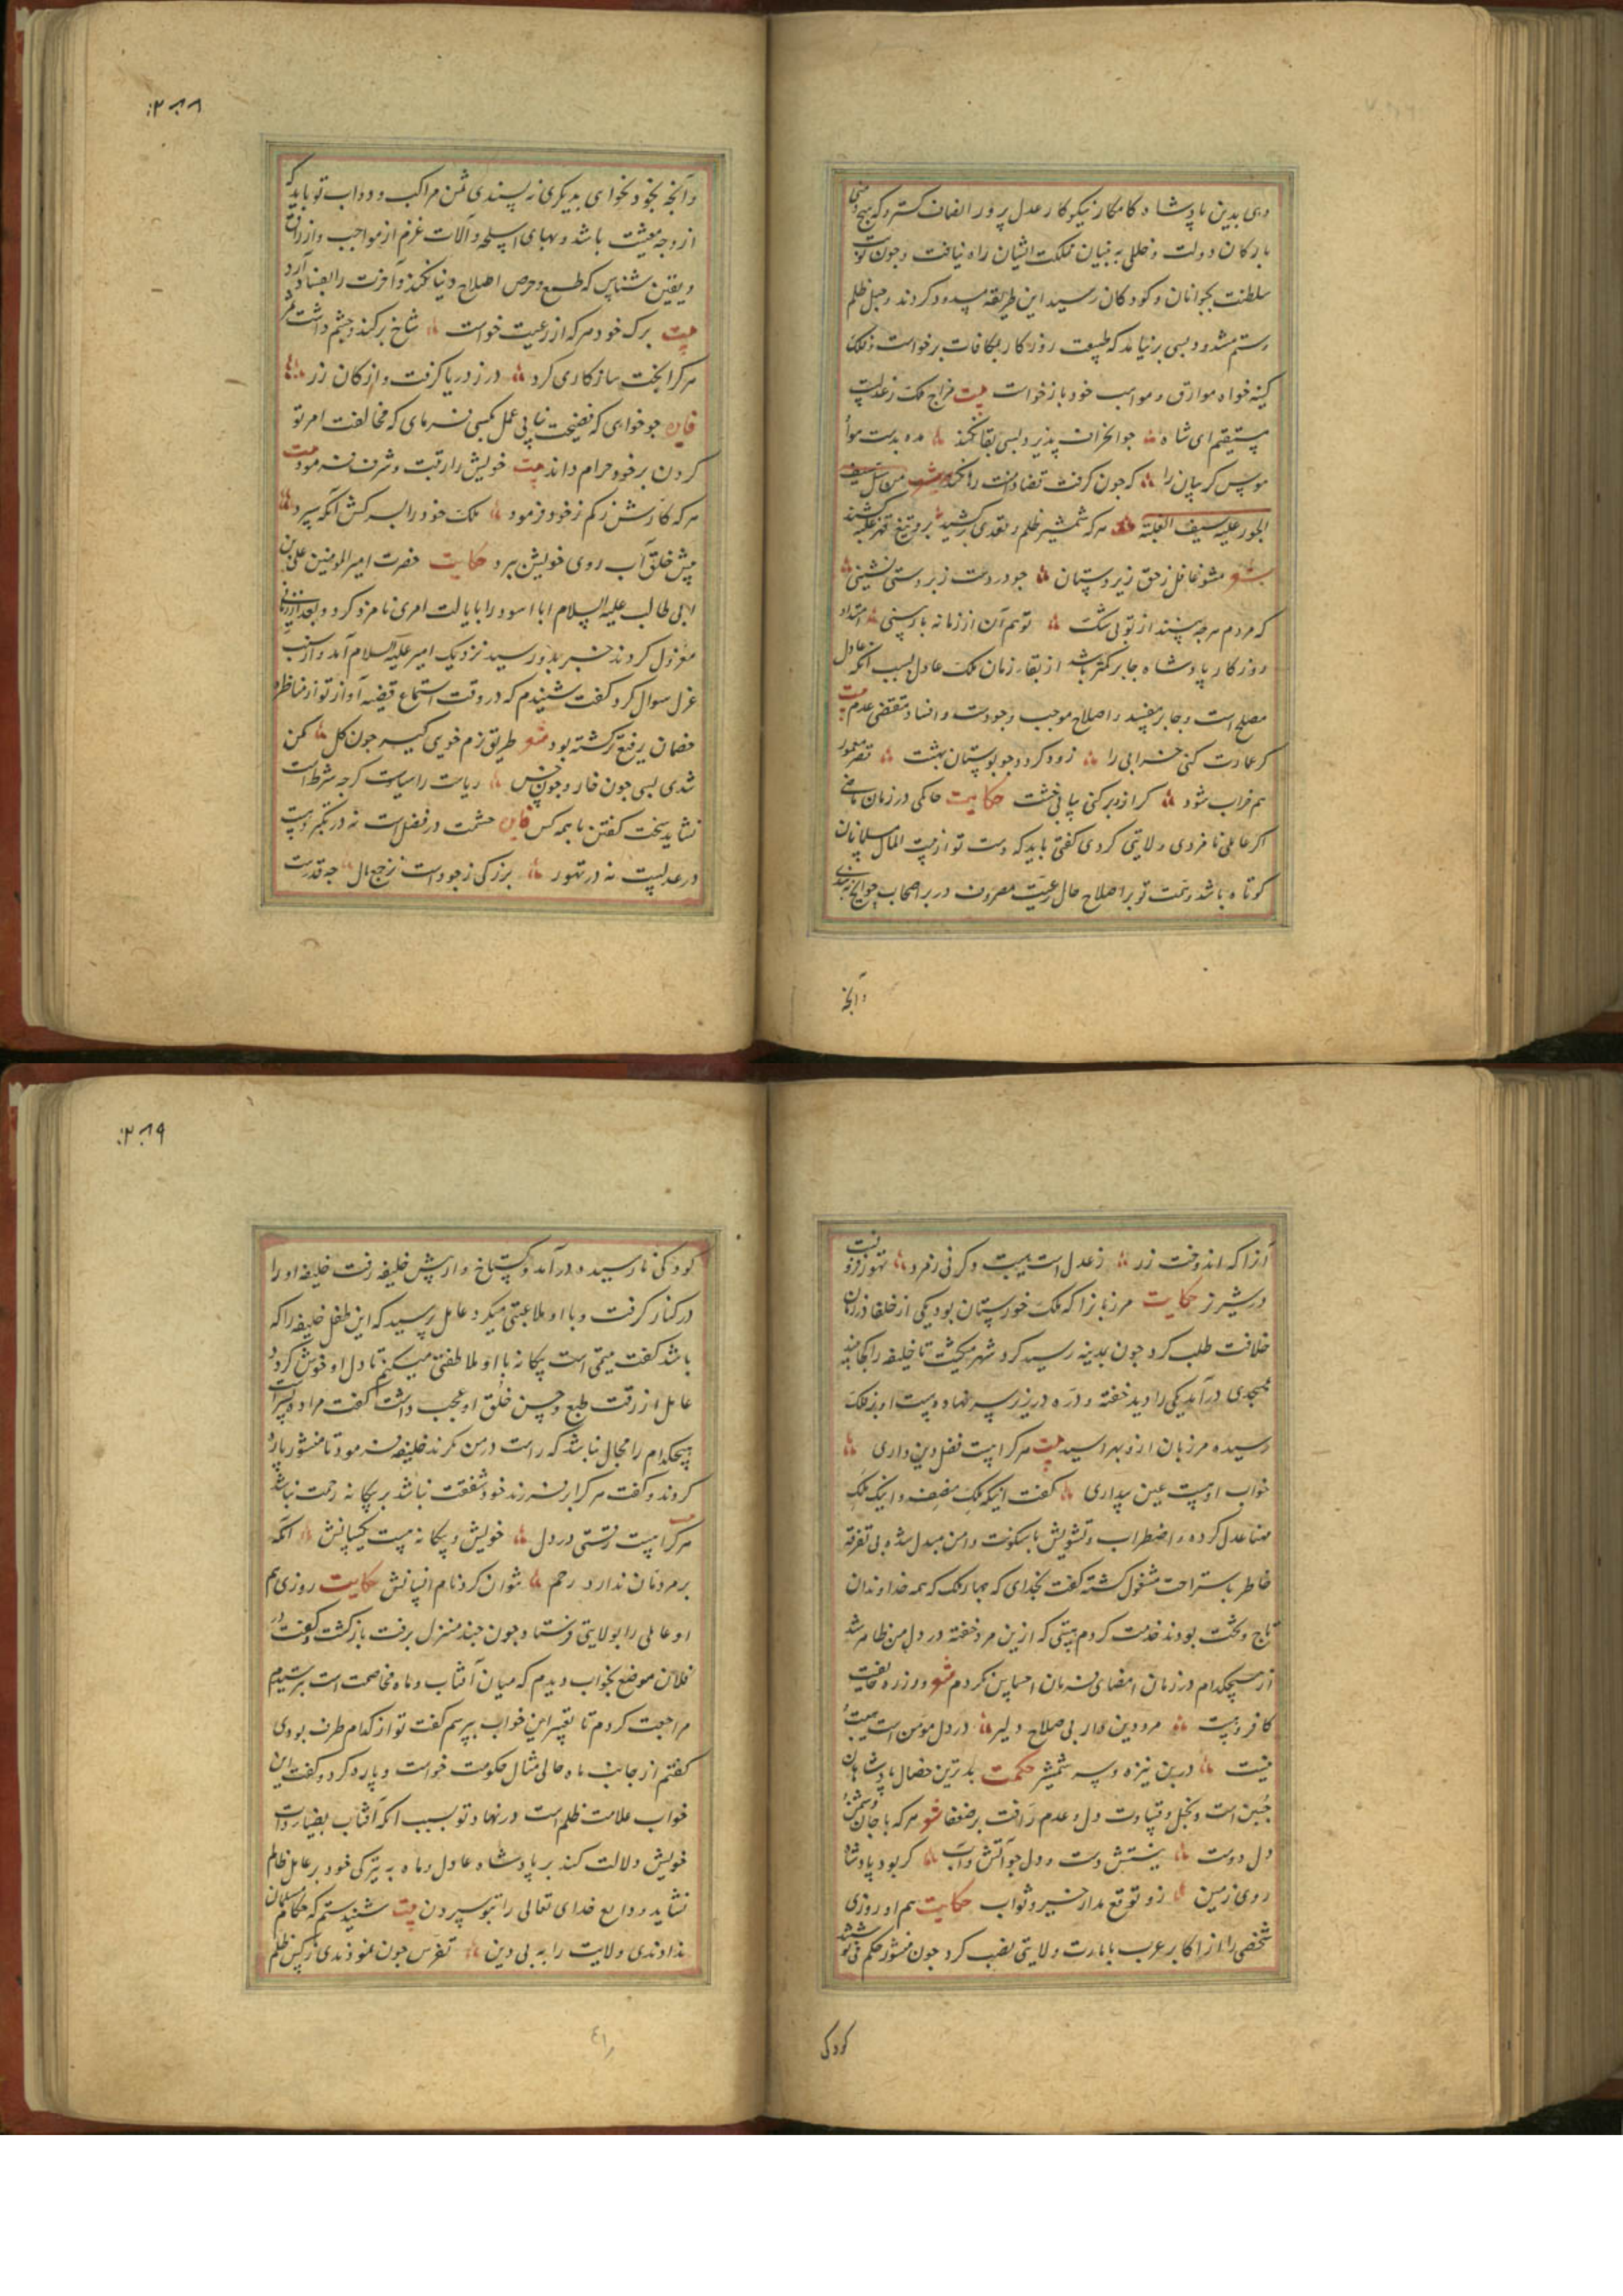 وی بدین پادشاه کامکار نیکوکار عدل پرور انصاف گستر که هیچ
بارکان دولت و خللی به بنیان مملکت ایشان راه نیافت و چون نوبت
سلطنت بجوانان و کودکان رسید این طریقه مسدود کردند و حبل ظلم
و ستم مشدود بسی برنیامد که طبیعت روزکار بمکافات برخواست و فلک
کینه خواه و مواهب خود باز خواست بیت مزاج ملک ز عدلست
مستقیم ای شاه چو انحراف پذیرد بسی بقا نکند مده بدست
موس کریبان را که چون کرفت قضا دامنت رها نکند من سل سیف
الجور علیه سیف الغلبة هرکه شمشیر ظلم و تعدی برکشید برو تیغ قهر و غلبه کشند
شعر مشو غافل ز حق زیردستان چو در دست زبردستی نشینی
که مردم هرچه بینند از تو بی شک تو هم آن از زمانه باز بینی امتداد
روزکار پادشاه جابر کمتر باشد از بقاء زمان ملک عادل بسبب آنکه عادل
مصلح است و جابر مفسد و اصلاح موجب وجودست و افساد مقتضی عدم بیت
کر عمارت کنی خرابی را زود کردد چو بوستان بهشت قصر معمور
هم خراب شود کر ازو برکنی بیابی خشت حکایت حاکمی در زمان ماضی
اکر عاملی نامزدی ولایتی کردی کفتی باید که دست تو از بیت المال مسلمانان
کوتاه باشد و همت تو بر اصلاح حال رعیت مصروف در بر اصحاب حوایج نه بندی
و آنچه
۲۸۸
و آنچه بخود نخواهی بدیکری نه پسندی ثمن مراکب و دواب تو باید که
از وجه معیشت باشد و بهای اسلحه و آلات غزم از مواجب و ارزاق
و یقین شناس که طمع و حرص اصلاح دنیا نکند و آخرت را بفساد آرد
بیت برک خود هرکه از رعیت خواست شاخ برکند و چشم داشت ثمر
هرکرا بخت سازکاری کرد در ز دریا کرفت و از کان زر
فایده چو خواهی که فضیحت نیابی عمل بکسی فرمای که مخالفت امر تو
کردن بر خود حرام داند بیت خویش را رتبت و شرف فرمود
هرکه کارش ز کم ز خود فرمود ملک خود را بسرکش آنکه سپرد
پیش خلق آب روی خویش ببرد حکایت حضرت امیرالمومنین علی بن
ابی طالب علیه السلام ابا اسود را بایالت امری نامزد کرد و بعد از زمانی
معزول کردند خبر بدو رسید نزدیک امیر علیه السلام آمد و از سبب
عزل سوال کرد کفت شنیدم که در وقت استماع قضیه آواز تو از مناظره
خصمان رفیع تر کشته بود شعر طریق نرم خویی کیر چون کل مکن
تندی بسی چون خار و چون خس ریاست را سیاست کرچه شرط است
نشاید سخت کفتن با همه کس فایده حشمت در فضل است نه در تکبر و هیبت
در عدلست نه در تهور بزرکی ز جود است نز جمع مال چه قدرست
آنرا که اندوخت زر ز عدل است هیبت و کر نی ز فرد تهور فزونست
در شیر نر حکایت هرمزان را که ملک خوزستان بود یکی از خلفا در زمان
خلافت طلب کرد چون بمدینه رسید کرد شهر میکشت تا خلیفه را کجا بیند
بمسجدی درآمد یکی را دید خفته و دره در زیر سر نهاده و هیبت او بر فلک
رسیده مرزبان ازو بهراسید بیت هرکرا هست فضل و دین داری
خواب او هست عین بیداری کفت اینک ملک منصف و اینک ملک
مهنا عدل کرده و اضطراب و تشویش با سکونت و امن مبدل شده و بی تفرقه
خاطر باستراحت مشغول کشته کفت بخدای که چهار ملک که همه خداوندان
تاج و تخت بودند خدمت کردم هیبتی که ازین مرد خفته در دل من ظاهر شد
از هیچکدام در زمان امضای فرمان احساس نکردم شعر
کافر و بیت مرد دین دار بی صلاح دلیر در دل مومن است هیبت
نیست درین نیزه و سر شمشیر حکمت بدترین خصال پادشاهان
جبن است و بخل و قساوت دل و عدم رافت بر ضعفا شعر هرکه با جان
دل دوست بینشش دست و دل چو آتش و آب کر بود پادشاه
روی زمین زو توقع مدار خیر و ثواب حکایت هم او روزی
شخصی را از اکابر عرب بامارت ولایتی نصب کرد چون منشور حکم می نوشتند
کودکی
۲۸۹
کودکی نارسیده درآمد و کستاخ وار پیش خلیفه رفت خلیفه او را
در کنار کرفت و با او ملاعبتی میکرد عامل پرسید که این طفل خلیفه را که
باشد کفت یتیمی است بیکانه با او ملاطفتی میکنم تا دل او خوش کردد
عامل از رقت طبع و حسن خلق او عجب داشت کفت مرا دو پسر است
هیچکدام را مجال نباشد که راست در من نکرند خلیفه فرمود تا منشور پاره
کردند و کفت هرکرا بر فرزند خود شفقت نباشد بر بیکانه رحمت نباشد
هرکرا نیست رقتی در دل خویش و بیکانه نیست یکسانش آنکه
بر مردمان ندارد رحم نتوان کرد نام انسانش حکایت روزی هم
او عاملی را بولایتی فرستاد چون چند منزل برفت بازکشت و کفت در
فلان موضع بخواب دیدم که میان آفتاب و ماه مخاصمت است بترسیدم
مراجعت کردم تا تعبیر این خواب بپرسم کفت تو از کدام طرف بودی
کفتم از جانب ماه حالی مثال حکومت خواست و پاره کرد و کفت این
خواب علامت ظلم است در نهاد تو بسبب آنکه آفتاب بضیا و ذات
خویش دلالت کند بر پادشاه عادل و ماه به تیرکی خود بر عامل ظالم
نشاید ودایع خدای تعالی را بتو سپردن بیت شنیدستم که حکام مسلمان
ندادندی ولایت را به بی دین تفرس چون نمودندی ز کس ظلم